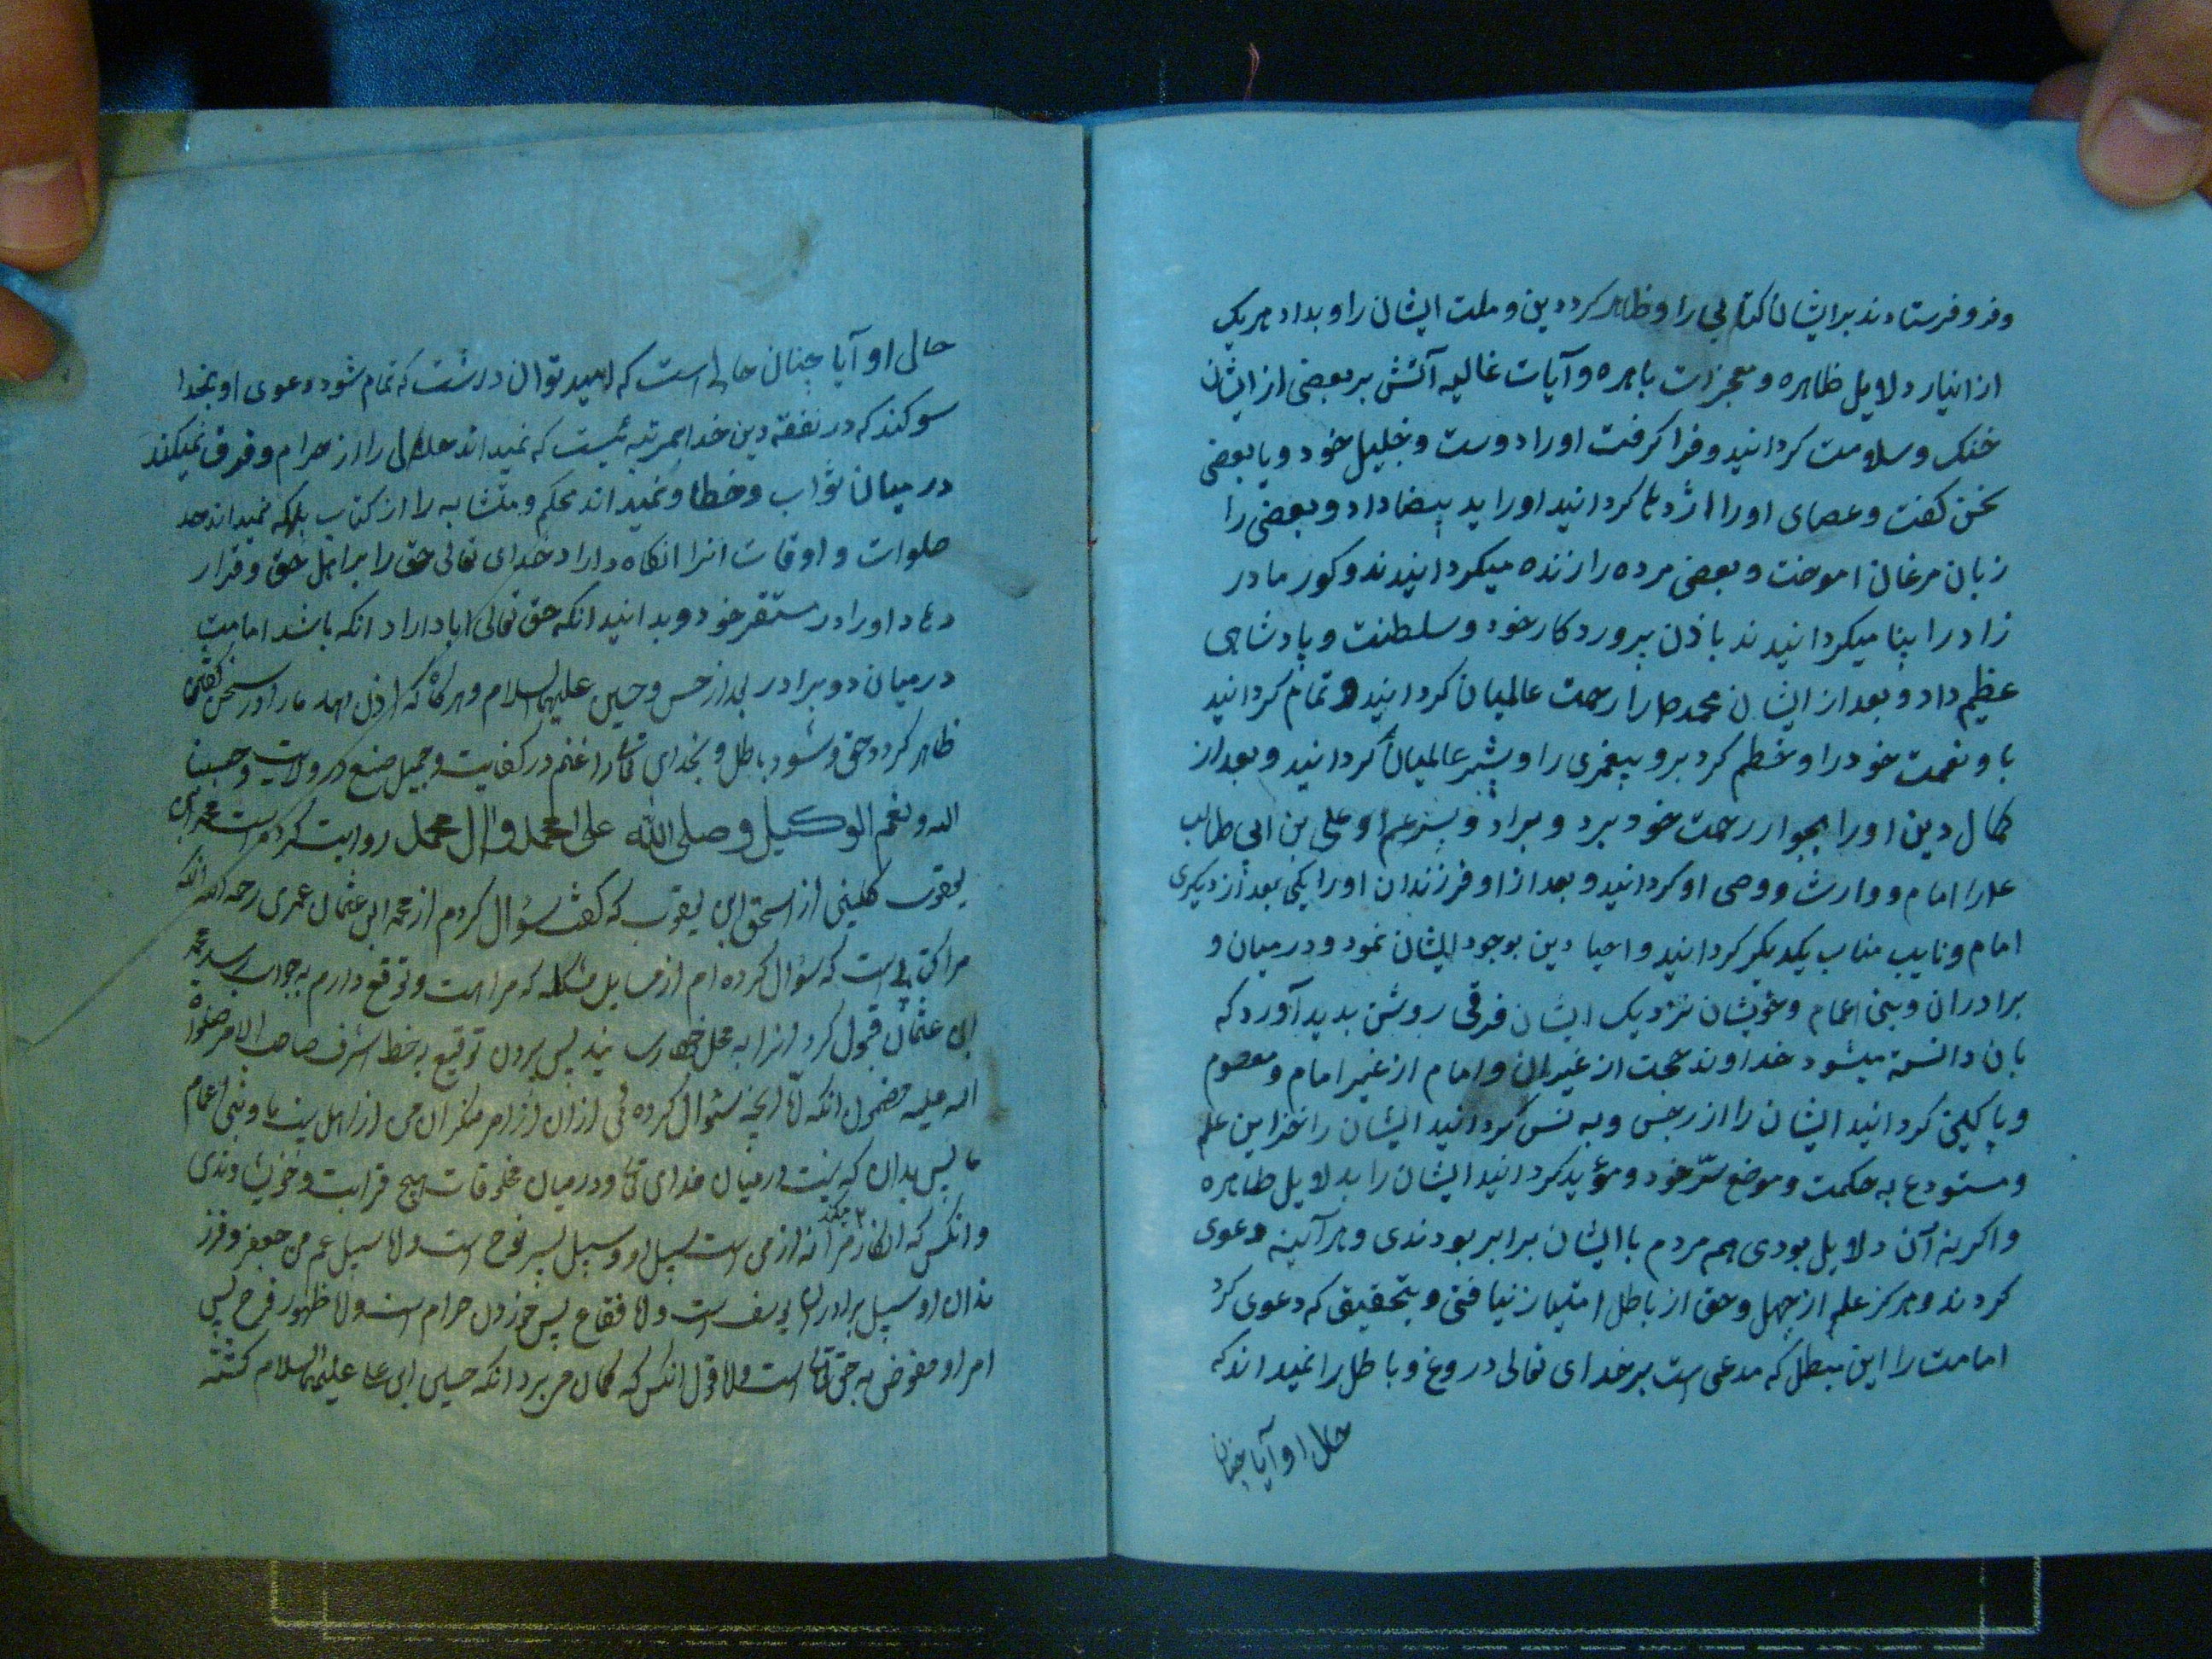 وفرو فرستادند بر ایشان کتابی را و ظاهر کرد دین و ملت ایشان را و بداد هر یک
از انبیا را دلایل ظاهره و معجزات باهره و آیات غالیه آتش بر بعضی از ایشان
خنک و سلامت کردانید و فرا کرفت او را دوست و خلیل خود و با بعضی
سخن کفت و عصای او را اژدها کردانید او را ید بیضا داد و بعضی را
زبان مرغان اموخت و بعضی مرده را زنده میکردانیدند و کور مادر
زاد را بینا میکردانیدند باذن پروردکار خود و سلطنت و پادشاهی
عظیم داد و بعد از ایشان محمد ص را رحمت عالمیان کردانید و تمام کردانید
باو نعمت خود را و ختم کرد برو پیغمبری را و بشیر عالمیان کردانید و بعد از
کمال دین او را بجوار رحمت خود برد و برادر و پسر عم او علی بن ابی طالب
ع را امام و وارث و وصی او کردانید و بعد از او فرزندان او را یکی بعد از دیکری
امام و نایب مناب یکدیکر کردانید و احیا دین بوجود ایشان نمود و در میان و
برادران و بنی اعمام و خویشان نزدیک ایشان فرقی روشن بدید آورد که
بان دانسته میشود خداوند حجت از غیر ان و امام از غیر امام و معصوم
و پاکیزه کردانید ایشان را از رجس و کردانید ایشان را خزاین علم
و مستودع به حکمت و موضع سرّ خود و مؤید کردانید ایشان را بدلایل ظاهره
و اکر نه آن دلایل بودی هم مردم با ایشان برابر بودندی و هر آئینه دعوی
کردند و هرکز علم از جهل و حق از باطل امتیاز نیافتی و بتحقیق که دعوی کرد
امامت را این مبطل که مدعی است بر خدای تعالی دروغ و باطل را نمیداند که
حال او آیا چنان
حالی او آیا چنان حالی است که امید توان داشت که تمام شود دعوی او بخدا
سوکند که در نفقه دین خدا مرتبه نیست که نمیداند حلالی را از حرام و فرق نمیکند
در میان ثواب و خطا و نمیداند محکم و متشابه را از کتاب بلکه نمیداند حد
صلوات و اوقات انرا انکاه دارا د خدای تعالی حق را بر اهل حق و قرار
دهاد او را در مستقر خود و بدانید انکه حق تعالی ابا دارا د انکه باشد امامت
در میان دو برادر بعد از حسن و حسین علیهما السلام و هرکاه که اذن دهد ما را در سخن کفتن
ظاهر کردد حق و شود باطل و بخدای در کفایت و جمیل صنع در ولایت و حسبنا
الله و نعم الوکیل و صلی الله علی محمد و ال محمد روایت کرده است محمد بن
یعقوب کلینی از اسحق ابن یعقوب که کفت سؤال کردم از محمد ابن عثمان عمری رحمه الله انکه
مرا کتابی است که سؤال کرده ام از مسایل مشکله که مرا هست و توقع دارم به جواب رسد محمد
ابن عثمان قبول کرد انرا به محل پس برون توقیع به خط اشرف صاحب الامر صلوات
الله علیه مضمون انکه امّا انچه سئوال کرده ئی از ان از امر منکران من از اهل بیت ما و بنی اعمام
ما پس بدان که نیست در میان خدای تع و در میان مخلوقات هیچ قرابت و خویشاوندی
و انکس که انکار مرا میکند نه از من است سبیل او سبیل پسر نوح است و اما سبیل عم من جعفر و فرز
ندان او سبیل برادران یوسف است و اما فقاع پس خوردن حرام است و اما ظهور فرج پس
امر او مفوض به حق تعالی است و اما قول انکس که کمان می برد انکه حسین ابن علی علیهما السلام کشته